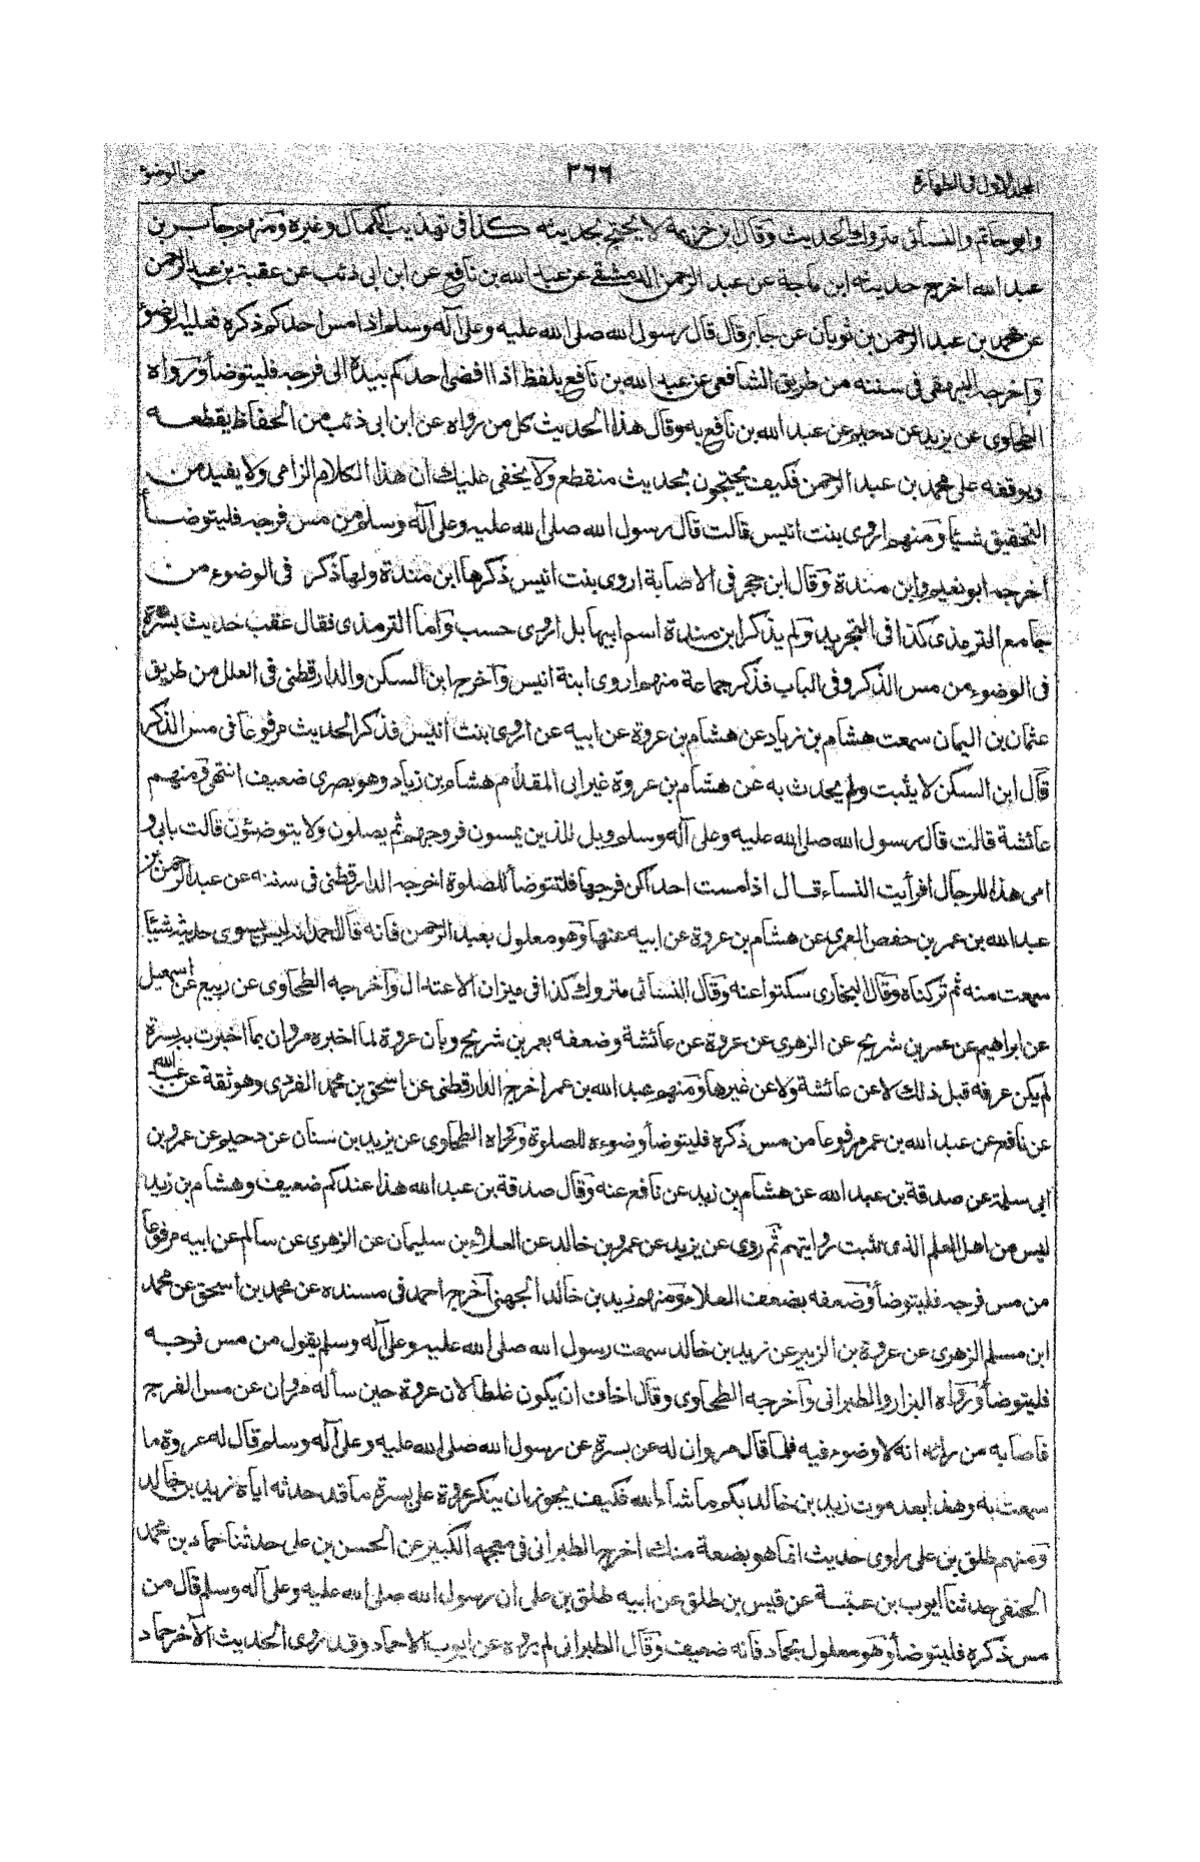 المجلد الاول فى الطهارة
٢٦٦
من الوضوء
وابو حاتم والنسائى متروك الحديث وقال ابن خزيمة لا يحتج بحديثه كذا فى تهذيب الكمال وغيره ومنهم جابر بن
عبد الله اخرج حديثه ابن ماجة عن عبد الرحمن الدمشقى عن عبد الله بن نافع عن ابن ابى ذئب عن عقبة بن عبد الرحمن
عن محمد بن عبد الرحمن بن ثوبان عن جابر قال قال رسول الله صلى الله عليه وعلى آله وسلم اذا مس احدكم ذكره فعليه الوضوء
واخرجه البيهقى فى سننه من طريق الشافعى عن عبد الله بن نافع بلفظ اذا افضى احدكم بيده الى فرجه فليتوضأ ورواه
الطحاوى عن يزيد عن دحيم عن عبد الله بن نافع به وقال هذا الحديث كل من رواه عن ابن ابى ذئب من الحفاظ يقطعه
ويوقفه على محمد بن عبد الرحمن فكيف يحتجون بحديث منقطع ولا يخفى عليك ان هذا الكلام الزامى ولا يفيد من
التحقيق شيئا ومنهم اروى بنت انيس قالت قال رسول الله صلى الله عليه وعلى آله وسلم من مس فرجه فليتوضأ
اخرجه ابو نعيم وابن مندة وقال ابن حجر فى الاصابة اروى بنت انيس ذكرها ابن مندة ولها ذكر فى الوضوء من
جامع الترمذى كذا فى التجريد ولم يذكر ابن مندة اسم ابيها بل اروى حسب واما الترمذى فقال عقب حديث بسرة
فى الوضوء من مس الذكر وفى الباب فذكر جماعة منهم اروى ابنة انيس وآخرج ابن السكن والدارقطنى فى العلل من طريق
عثمان بن اليمان سمعت هشام بن زياد عن هشام بن عروة عن ابيه عن اروى بنت انيس فذكر الحديث مرفوعا فى مس الذكر
قال ابن السكن لا يثبت ولم يحدث به عن هشام بن عروة غير ابى المقدام هشام بن زياد وهو بصرى ضعيف انتهى ومنهم
عائشة قالت قال رسول الله صلى الله عليه وعلى آله وسلم ويل للذين يمسون فروجهم ثم يصلون ولا يتوضئون قالت بابى و
امى هذا للرجال افرأيت النساء قال اذا مست احداكن فرجها فلتتوضأ للصلوة اخرجه الدارقطنى فى سننه عن عبد الرحمن بن
عبد الله بن عمر بن حفص العمرى عن هشام بن عروة عن ابيه عنها وهو معلول بعبد الرحمن فانه قال احمد انه ليس يسوى حديثه شيئا
سمعت منه ثم تركناه وقال البخارى سكتوا عنه وقال النسائى متروك كذا فى ميزان الاعتدال وآخرجه الطحاوى عن ربيع عن اسمعيل
عن ابراهيم عن عمر بن شريح عن الزهرى عن عروة عن عائشة وضعفه بعمر بن شريح وبان عروة لما اخبره مروان بما اخبرت به بسرة
لم يكن عرفه قبل ذلك لا عن عائشة ولا عن غيرها ومنهم عبد الله بن عمر اخرج الدارقطنى عن اسحق بن محمد الفردى وهو ثقة عن عبد الله
عن نافع عن عبد الله بن عمر مرفوعا من مس ذكره فليتوضأ وضوءه للصلوة ورواه الطحاوى عن يزيد بن سنان عن دحيم عن عمرو بن
ابى سلمة عن صدقة بن عبد الله عن هشام بن زيد عن نافع عنه وقال صدقة بن عبد الله هذا عندكم ضعيف وهشام بن زيد
ليس من اهل العلم الذى تثبت روايتهم ثم روى عن يزيد عن عمرو بن خالد عن العلاء بن سليمان عن الزهرى عن سالم عن ابيه مرفوعا
من مس فرجه فليتوضأ وضعفه بضعف العلاء ومنهم زيد بن خالد الجهنى آخرج احمد فى مسنده عن محمد بن اسحق عن محمد
ابن مسلم الزهرى عن عروة بن الزبير عن زيد بن خالد سمعت رسول الله صلى الله عليه وعلى آله وسلم يقول من مس فرجه
فليتوضأ ورواه البزار والطبرانى وآخرجه الطحاوى وقال اخاف ان يكون غلطا لان عروة حين سأله مروان عن مس الفرج
فاجابه من رأيه انه لا وضوء فيه فلما قال مروان له عن بسرة عن رسول الله صلى الله عليه وعلى آله وسلم قال له عروة ما
سمعت به وهذا بعد موت زيد بن خالد بكم ما شاء الله فكيف يجوز ان ينكر عروة على بسرة ما قد حدثه اياه زيد بن خالد
ومنهم طلق بن على راوى حديث انما هو بضعة منك اخرج الطبرانى فى معجمه الكبير عن الحسن بن على حدثنا حماد بن محمد
الحنفى حدثنا ايوب بن عتبة عن قيس بن طلق عن ابيه طلق بن على ان رسول الله صلى الله عليه وعلى آله وسلم قال من
مس ذكره فليتوضأ وهو معلول بحماد فانه ضعيف وقال الطبرانى لم يروه عن ايوب الا حماد وقد روى الحديث الآخر حماد